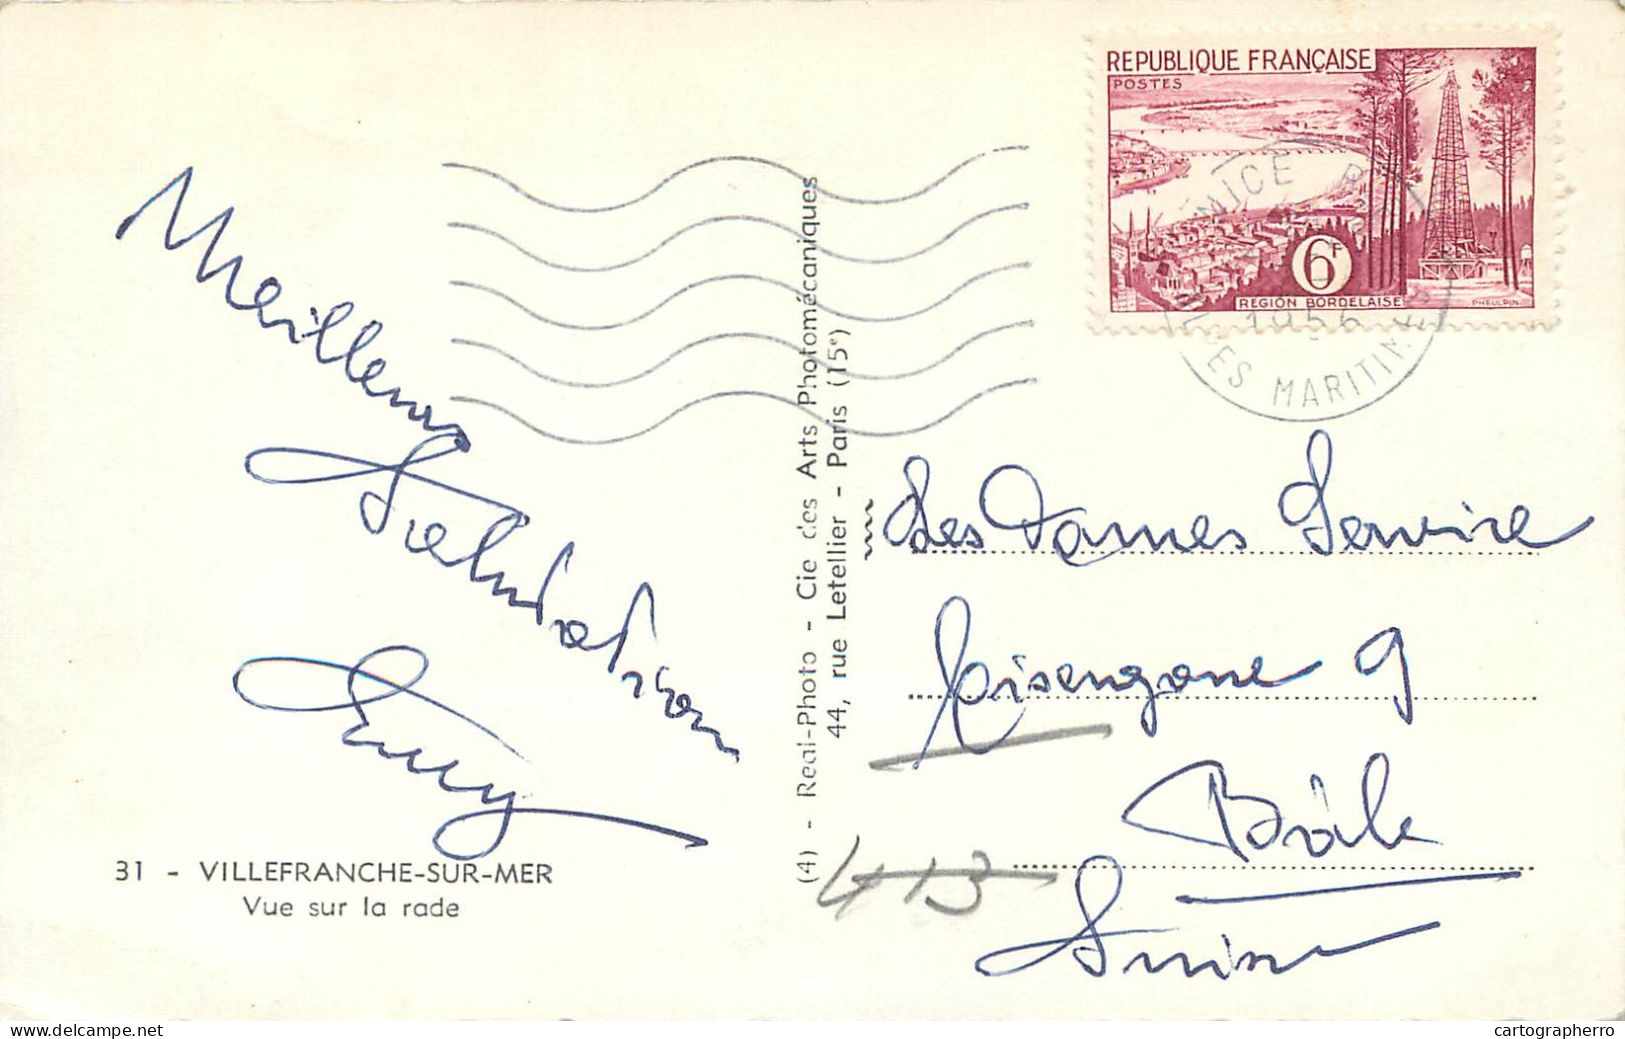 REPUBLIQUE FRANÇAISE
POSTES
6F
REGION BORDELAISE
PHEULPIN
NICE R.P.
1956
MARITIMES
Meilleures
Salutations
(4) - Real-Photo - Cie des Arts Photomécaniques
44, rue Letellier - Paris (15e)
Les Dames Service
9
Bâle
Suisse
413
31 - VILLEFRANCHE-SUR-MER
Vue sur la rade
delcampe.net
cartographerro